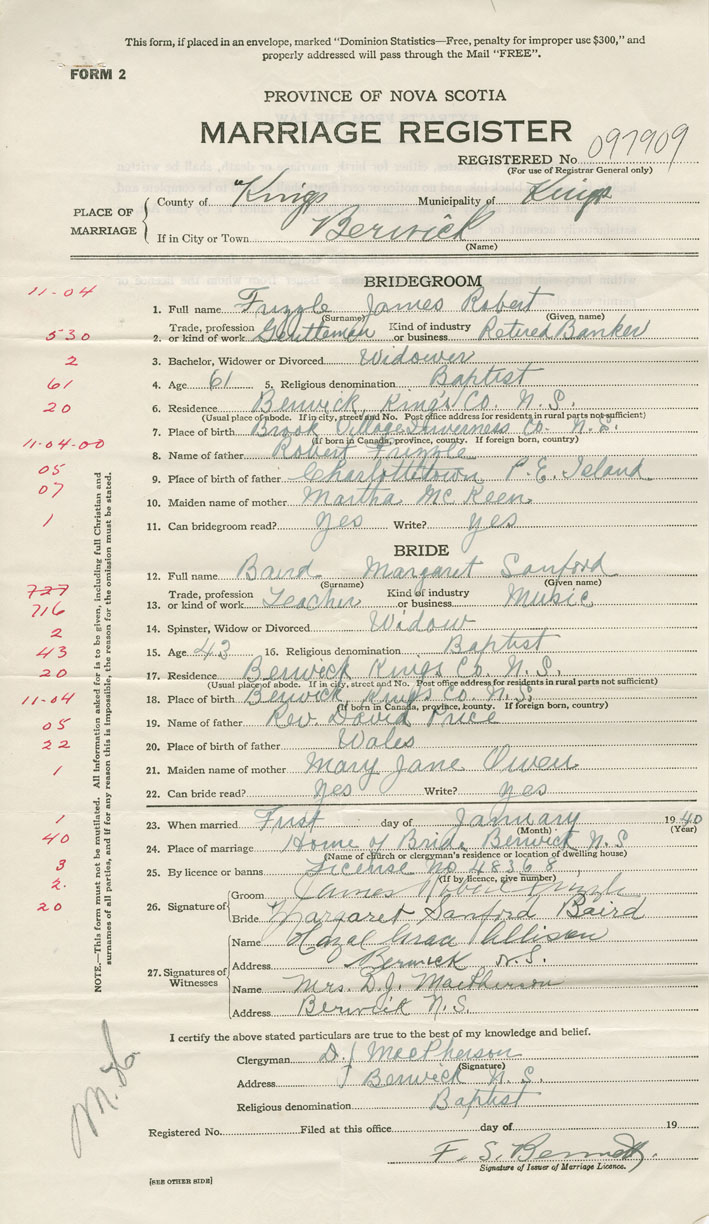 This form, if placed in an envelope, marked "Dominion Statistics—Free, penalty for improper use $300," and
properly addressed will pass through the Mail "FREE".
FORM 2
PROVINCE OF NOVA SCOTIA
MARRIAGE REGISTER
REGISTERED No 097909
(For use of Registrar General only)
PLACE OF MARRIAGE
County of Kings Municipality of Kings
If in City or Town Berwick
(Name)
BRIDEGROOM
11-04
1. Full name Frizzle James Robert
(Surname) (Given name)
530
2. Trade, profession or kind of work Gentleman Kind of industry or business Retired Banker
2
3. Bachelor, Widower or Divorced Widower
61
4. Age 61 5. Religious denomination Baptist
20
6. Residence Berwick King's Co. N.S.
(Usual place of abode. If in city, street and No. Post office address for residents in rural parts not sufficient)
7. Place of birth Brook Village Inverness Co. N.S.
(If born in Canada, province, county. If foreign born, country)
11-04-00
8. Name of father Robert Frizzle
05
9. Place of birth of father Charlottetown P.E. Island
07
10. Maiden name of mother Martha McKeen
1
11. Can bridegroom read? Yes Write? Yes
BRIDE
12. Full name Baird Margaret Sanford
(Surname) (Given name)
727
716
13. Trade, profession or kind of work Teacher Kind of industry or business Music
2
14. Spinster, Widow or Divorced Widow
43
15. Age 43 16. Religious denomination Baptist
20
17. Residence Berwick Kings Co. N.S.
(Usual place of abode. If in city, street and No. Post office address for residents in rural parts not sufficient)
11-04
18. Place of birth Berwick King's Co. N.S.
(If born in Canada, province, county. If foreign born, country)
05
19. Name of father Rev. David Price
22
20. Place of birth of father Wales
1
21. Maiden name of mother Mary Jane Owen
22. Can bride read? Yes Write? Yes
1
23. When married First day of January 1940
(Month) (Year)
40
24. Place of marriage Home of Bride Berwick N.S
(Name of church or clergyman's residence or location of dwelling house)
3
25. By licence or banns License no 48368
(If by licence, give number)
2.
20
26. Signature of
Groom James Robert Frizzle
Bride Margaret Sanford Baird
27. Signatures of Witnesses
Name Hazel
Address Berwick N.S.
Name Mrs. D.J. MacPherson
Address Berwick N.S.
NOTE.—This form must not be mutilated. All information asked for is to be given, including full Christian and
surnames of all parties, and if for any reason this is impossible, the reason for the omission must be stated.
I certify the above stated particulars are true to the best of my knowledge and belief.
Clergyman D.J MacPherson
(Signature)
Address Berwick N.S.
Religious denomination Baptist
Registered No. Filed at this office day of 19
F. S. Bennett.
Signature of Issuer of Marriage Licence.
[SEE OTHER SIDE]